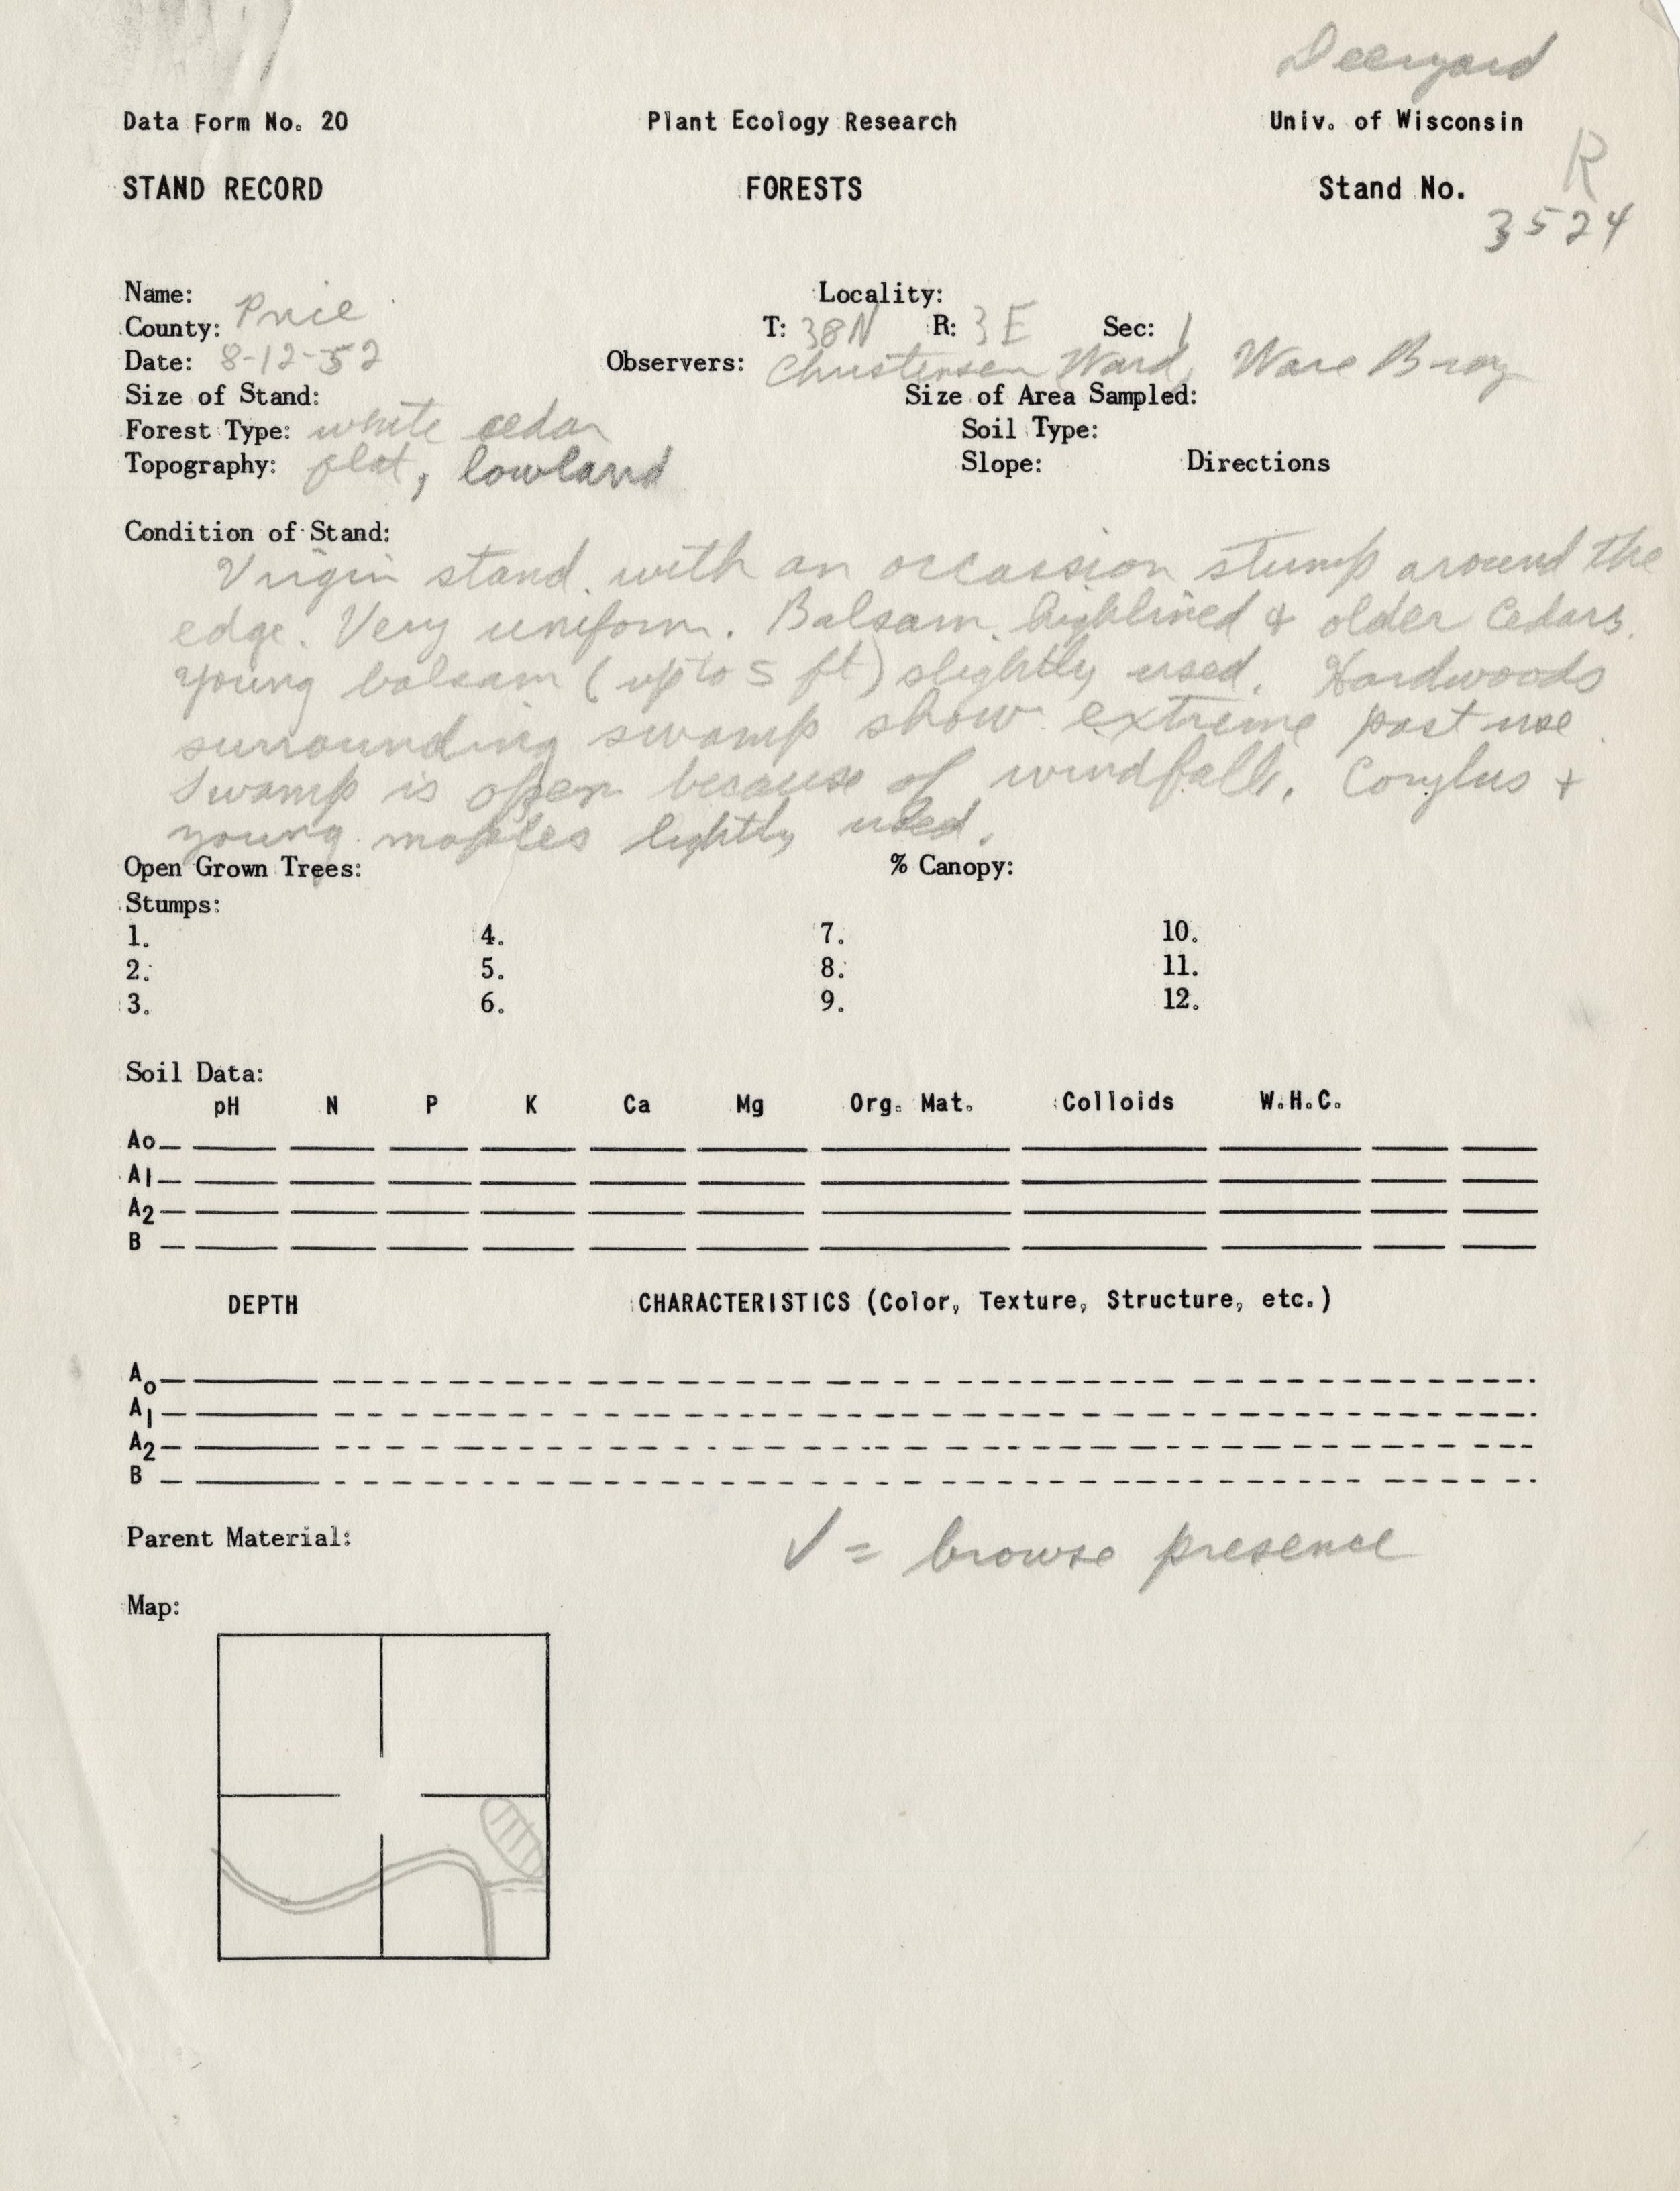 Deeryard
Data Form No. 20 Plant Ecology Research Univ. of Wisconsin
R
STAND RECORD FORESTS Stand No.
3524
Name: Locality:
County: Price T: 38N R: 3E Sec: 1
Date: 8-12-52 Observers: Christensen Ward, Ware Bray
Size of Stand: Size of Area Sampled:
Forest Type: white cedar Soil Type:
Topography: flat, lowland Slope: Directions
Condition of Stand:
Virgin stand with an occassion stump around the
edge. Very uniform. Balsam highlined & older Cedars.
Young balsam (up to 5 ft) slightly used. Hardwoods
surrounding swamp show extreme past use.
Swamp is open because of windfalls. Corylus +
young maples lightly used.
Open Grown Trees: % Canopy:
Stumps:
1. 4. 7. 10.
2. 5. 8. 11.
3. 6. 9. 12.
Soil Data:
pH N P K Ca Mg Org. Mat. Colloids W.H.C.
Ao
A1
A2
B
DEPTH CHARACTERISTICS (Color, Texture, Structure, etc.)
Ao
A1
A2
B
Parent Material: ✓ = browse presence
Map: